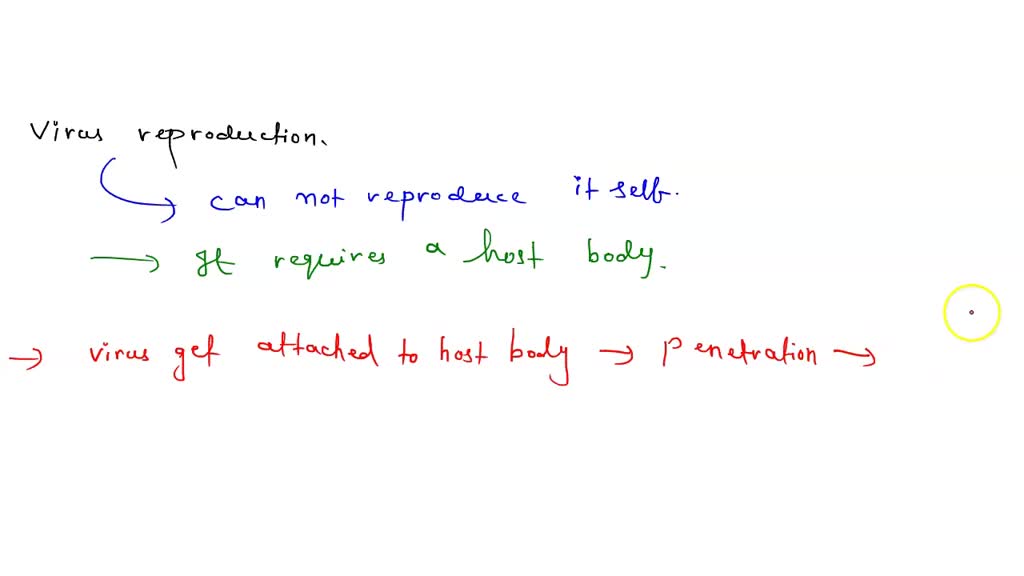 Virus reproduction.
can not reproduce it self.
→ It requires a host body.
→ virus get attached to host body → penetration →